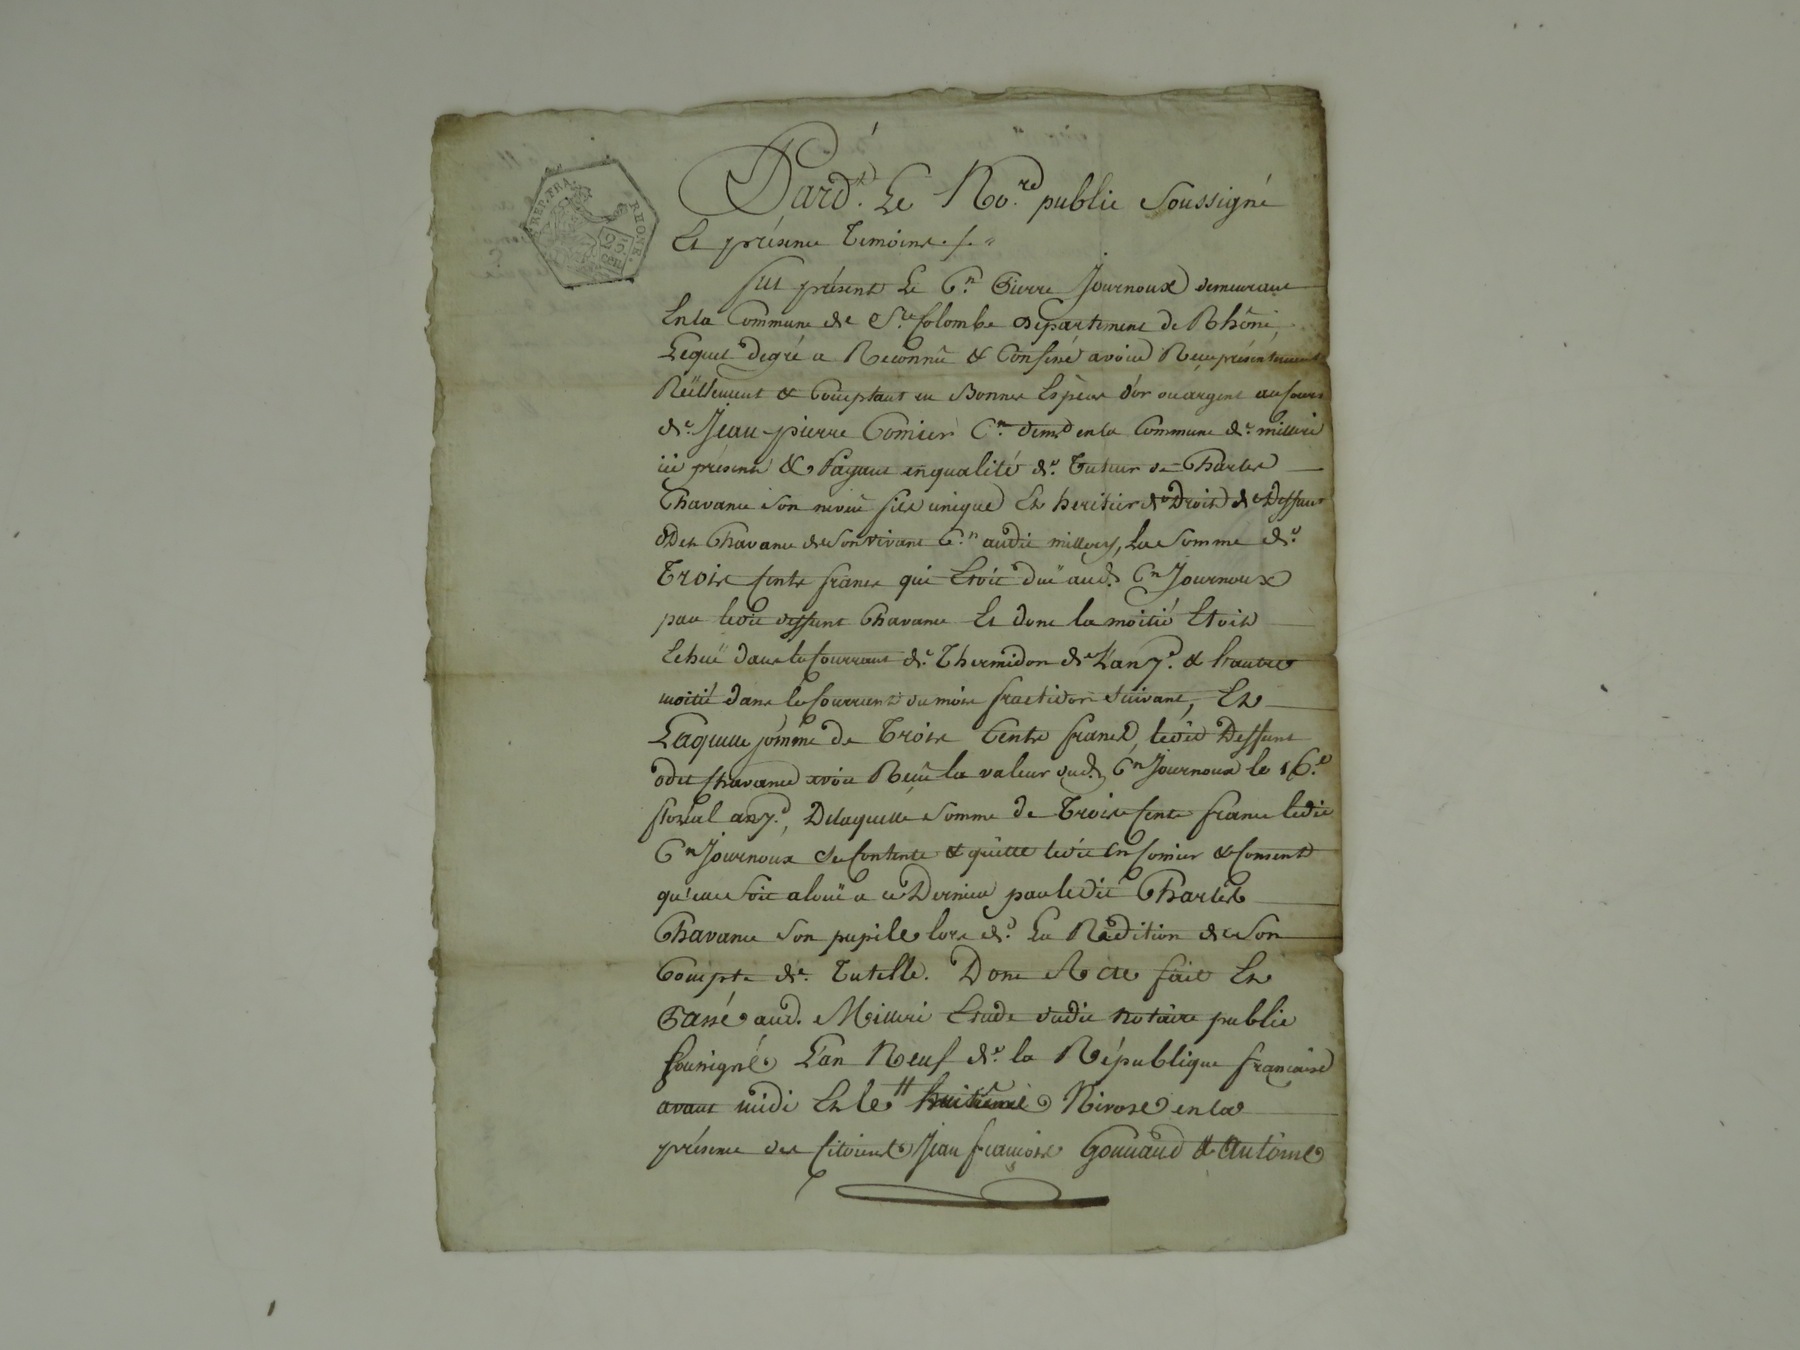 REP. FRA. RHONE.
25 CEN
Pard.t Le No.re public Soussigné
Et présence Témoins./.
fut présent Le C.n Pierre Journoux demeurant
En la Commune de S.te Colombe département de Rhône,
Lequel degré a Reconnu & Confessé avoir Reçu présentement
Réellement & Comptant en Bonnes Espèces d'or ou argent au cours
de Jean pierre Comier C.n dem.t en la Commune de milleri
ici présent & Payant en qualité de Tuteur de Charles
Chavane son neveu fils unique Et heritier de Droit de Deffunt
Chavane de son vivant C.n audit millery, La Somme de
Trois Cents francs qui Etoit düe aud. C.n Journoux
par ledit deffunt Chavane Et dont la moitié Etoit
Echuë dans le Courrant de Thermidor de L'an 7.e & l'autre
moitié dans le Courrant du mois fructidor suivant, Et
Laquelle somme de Trois Cents francs, ledit Deffunt
Chavane avoit Reçu la valeur dud. C.n Journoux le 16.e
floréal an 7.e, De laquelle Somme de Trois Cents francs ledit
C.n Journoux se Contente & quitte ledit C.n Comier & Consent
qu'elle soit alouë a ce Dernier par ledit Charles
Chavane son pupile lors de La Rédition de son
Compte de Tutelle. Dont Acte fait Et
Passé aud. Milleri Etude dudit notaire public
soussigné L'an Neuf de la République française
avant midi Et le huitième Nivose en la
présence des Citoiens Jean francois Gouvaud & Antoine